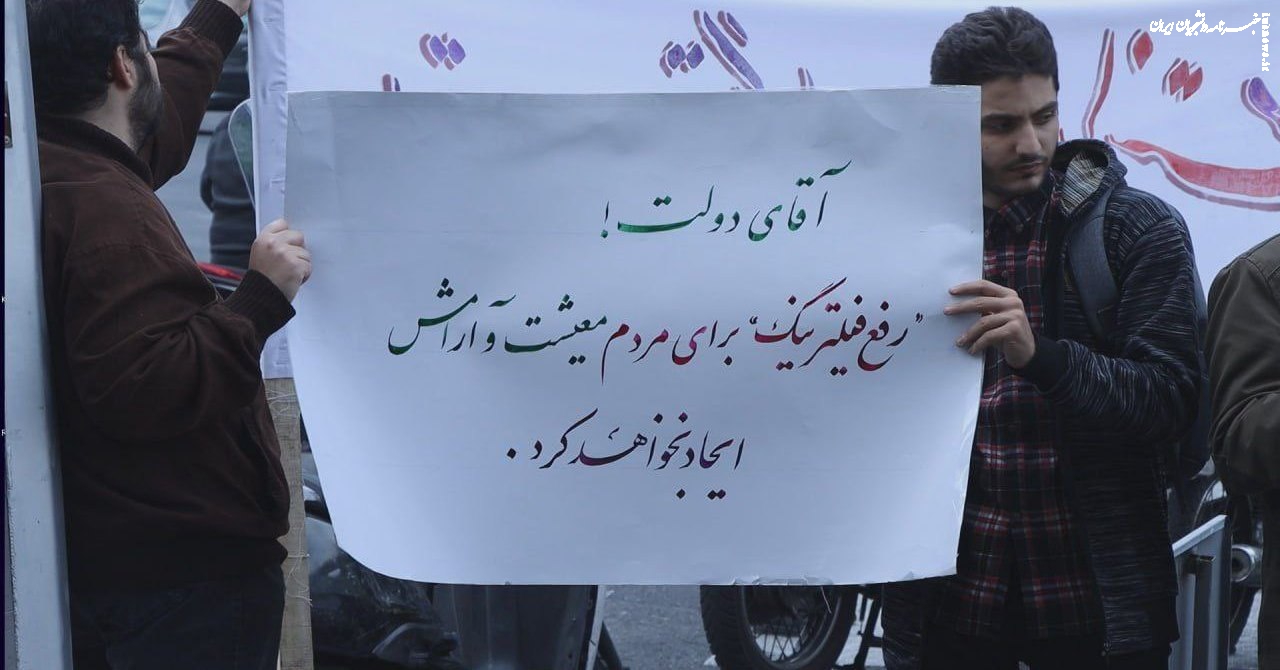 خبرنامه دانشجویان ایران
iusnews.ir
آقای دولت!
"رفع فیلترینگ" برای مردم معیشت و آرامش
ایجاد نخواهد کرد.